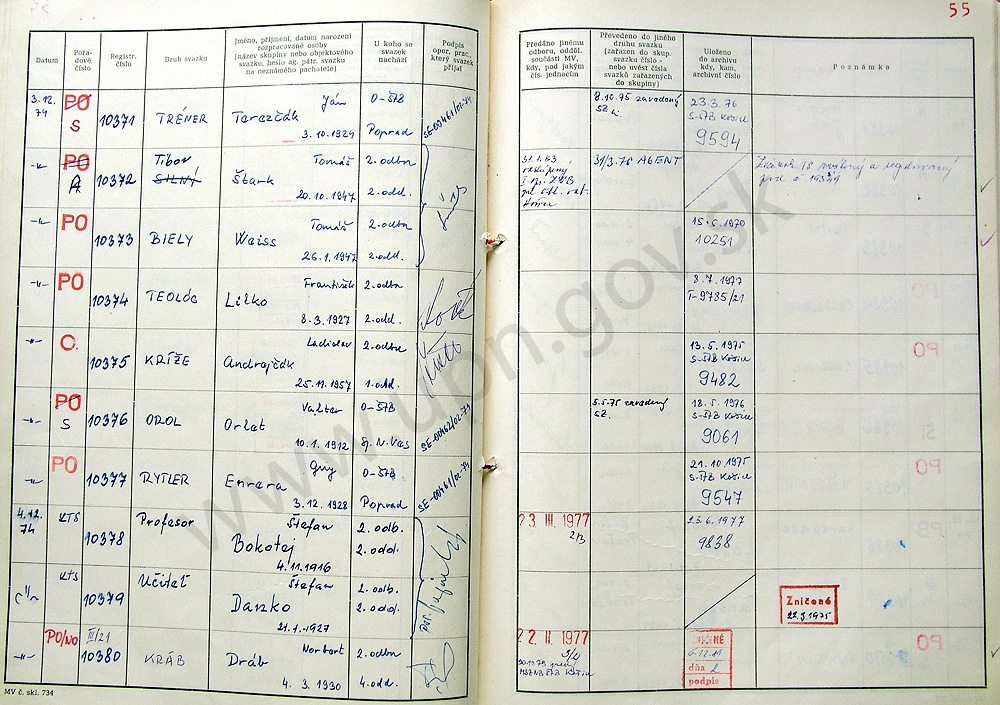 55
Datum
Pořa-
dové
číslo
Registr.
číslo
Druh svazku
Jméno, příjmení, datum narození
rozpracované osoby
(název skupiny nebo objektového
svazku, heslo ag. pátr. svazku
na neznámého pachatele)
U koho se
svazek
nachází
Podpis
oper. prac.,
který svazek
přijal
Předáno jinému
odboru, odděl.
součásti MV,
kdy, pod jakým
čís. jednacím
Převedeno do jiného
druhu svazku
(zařazen do skup.
svazku číslo -
nebo uvést čísla
svazků zařazených
do skupiny)
Uloženo
do archivu
kdy, kam,
archivní číslo
Poznámka
3.12.
74
PO
S
10371
TRÉNER
Ján
3.10.1924
O-ŠTB
Poprad
SE-00461/02-74
8.10.75 zavedený
23.3.76
S-ŠTB Košice
9594
PO
A
10372
Tibor
SILNÝ
Tomáš
Štark
20.10.1947
2. odbor
2. odd.
31/3.76 AGENT
PO
10373
BIELY
Tomáš
Weiss
26.1.1947
2. odbor
2. odd.
10251
PO
10374
František
Lilko
8.3.1927
2. odbor
2. odd.
8.7.1977
T-9785/21
O
10375
KRÍŽE
Ladislav
Andrejčák
25.11.1957
2. odbor
1. odd.
13.5.1975
S-ŠTB Košice
9482
PO
S
10376
OROL
Valter
Orlet
10.1.1912
O-ŠTB
Sp. N. Ves
SE-00462/02-74
5.5.75 zavedený
18.5.1976
S-ŠTB Košice
9061
PO
10377
RYTIER
Guy
3.12.1928
O-ŠTB
Poprad
SE-00461/02-74
21.10.1975
S-ŠTB Košice
9547
4.12.
74
KTS
10378
Profesor
Štefan
Bokotej
4.11.1916
2. odb.
2. odd.
23 III. 1977
2/B
23.6.1977
9838
KTS
10379
Učiteľ
Štefan
Danko
21.1.1927
2. odb.
2. odd.
Zničené
22.3.1975
PO/NO
III/21
10380
KRÁB
Norbert
Dráb
4.3.1930
2. odbor
4. odd.
22 II. 1977
ZNIČENÉ
dňa
podpis
MV č. skl. 734
www.upn.gov.sk